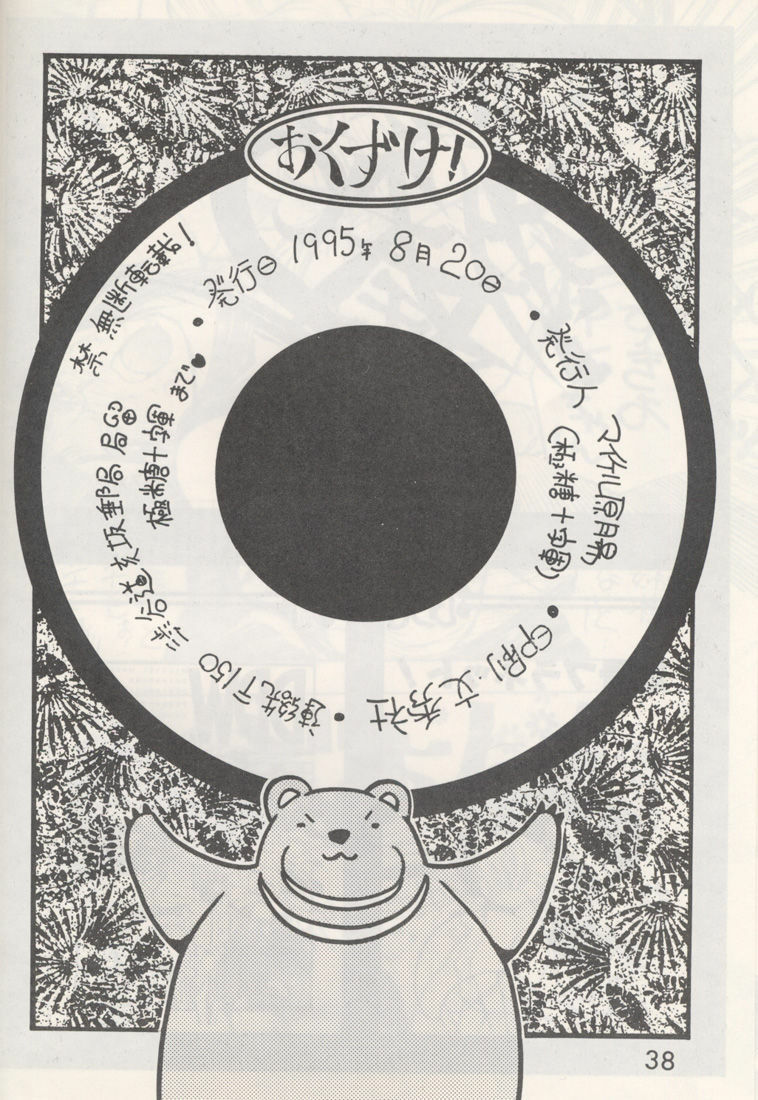 おくずけ!
・発行日 1995年 8月20日
・発行人
マイケル原腸
(極糖十字軍)
・印刷・文秀社
・連絡先〒150
渋谷道玄坂郵局局
極糖十字軍
まで
禁 無断転載!
38